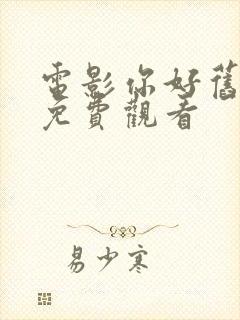 電影你好舊
免費觀看
易少寒